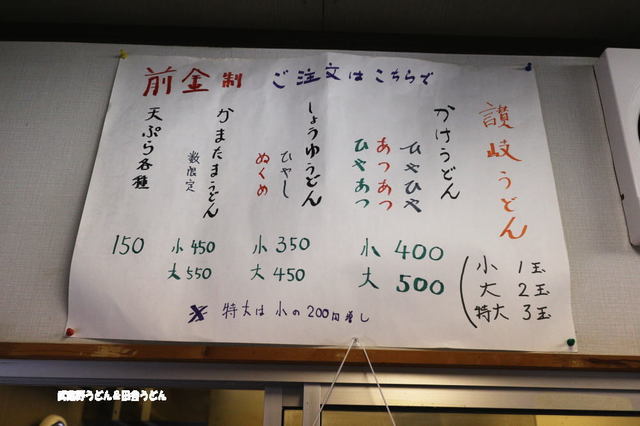 前金制 ご注文はこちらで
讃岐うどん
かけうどん
ひやひや
あつあつ
ひやあつ
小 400
大 500
小 1玉
大 2玉
特大 3玉
しょうゆうどん
ひやし
ぬくめ
小 350
大 450
かまたまうどん
数限定
小 450
大 550
天ぷら各種
150
※ 特大は小の200円増し
武蔵野うどん&田舎うどん